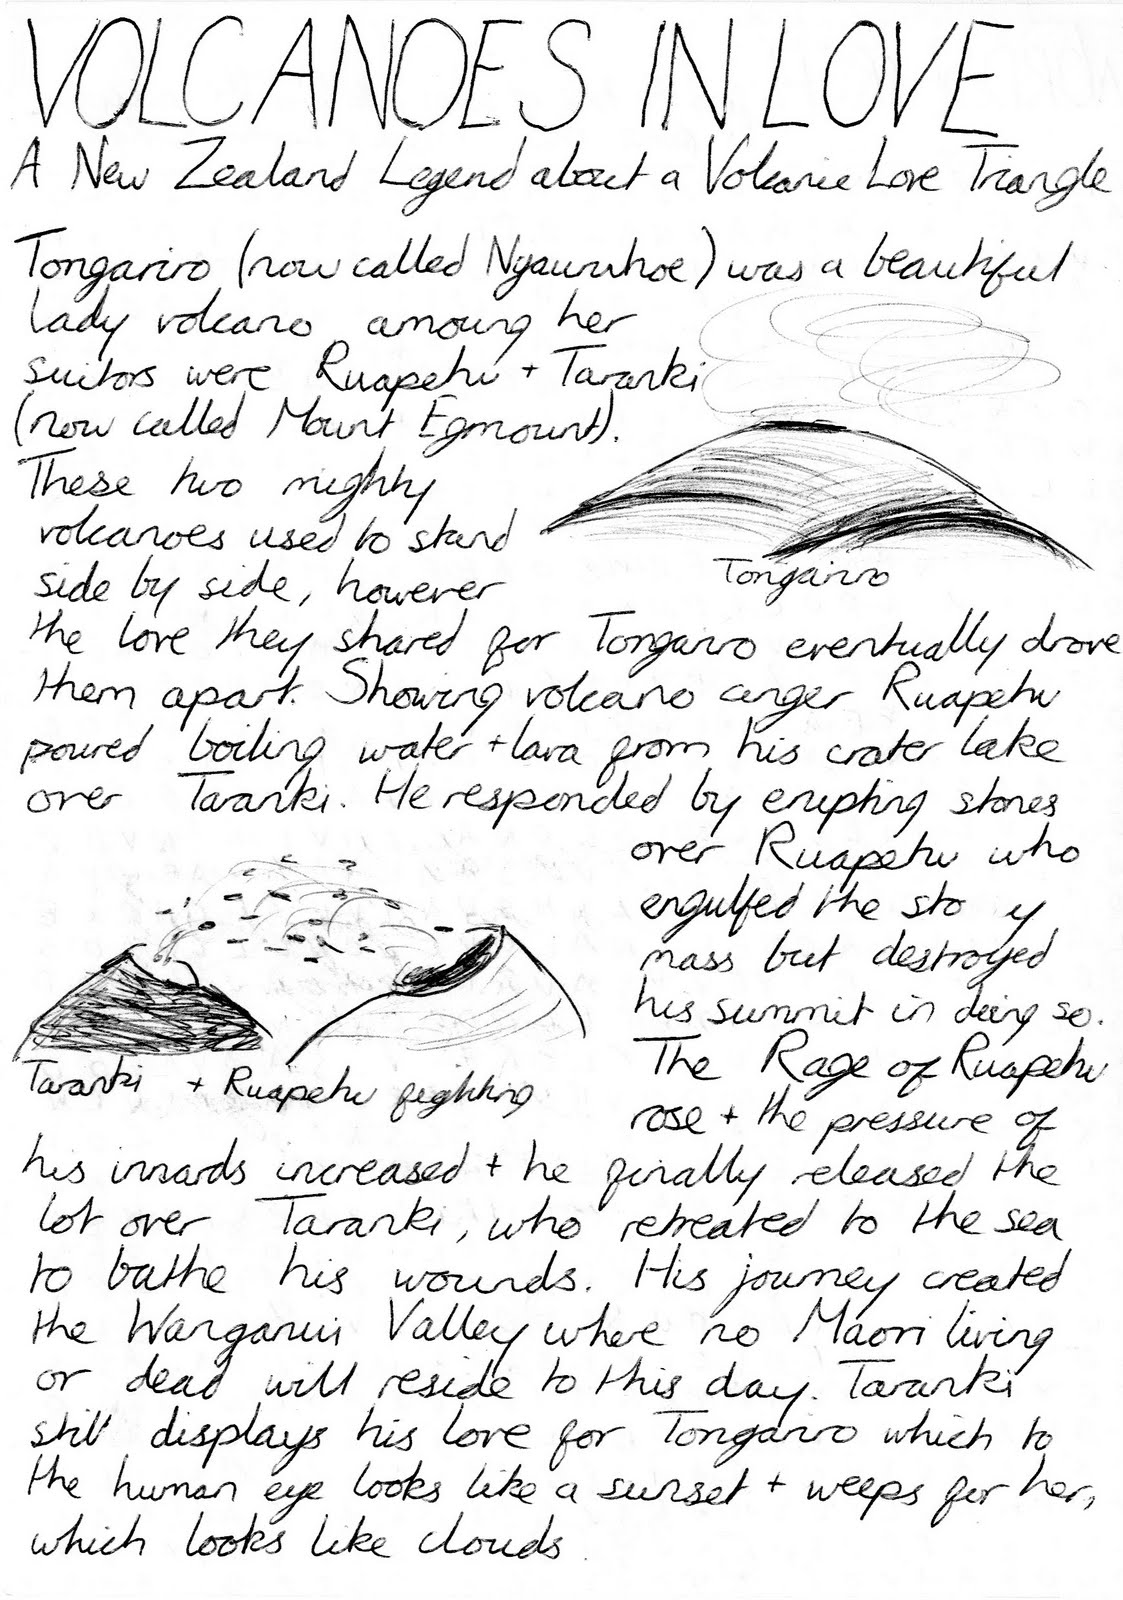 VOLCANOES IN LOVE
A New Zealand Legend about a Volcanic Love Triangle
Tongariro (now called Ngauruhoe) was a beautiful
lady volcano amoung her
suitors were Ruapehu + Taranki
(now called Mount Egmount).
These two mighty
volcanoes used to stand
side by side, however
the love they shared for Tongariro eventually drove
them apart. Showing volcano anger Ruapehu
poured boiling water + lava from his crater lake
over Taranki. He responded by erupting stones
over Ruapehu who
engulfed the sto y
mass but destroyed
his summit in doing so.
The Rage of Ruapehu
rose + the pressure of
his innards increased + he finally released the
lot over Taranki, who retreated to the sea
to bathe his wounds. His journey created
the Wanganui Valley where no Maori living
or dead will reside to this day. Taranki
still displays his love for Tongariro which to
the human eye looks like a sunset + weeps for her,
which looks like clouds.
Tongariro
Taranki + Ruapehu fighting